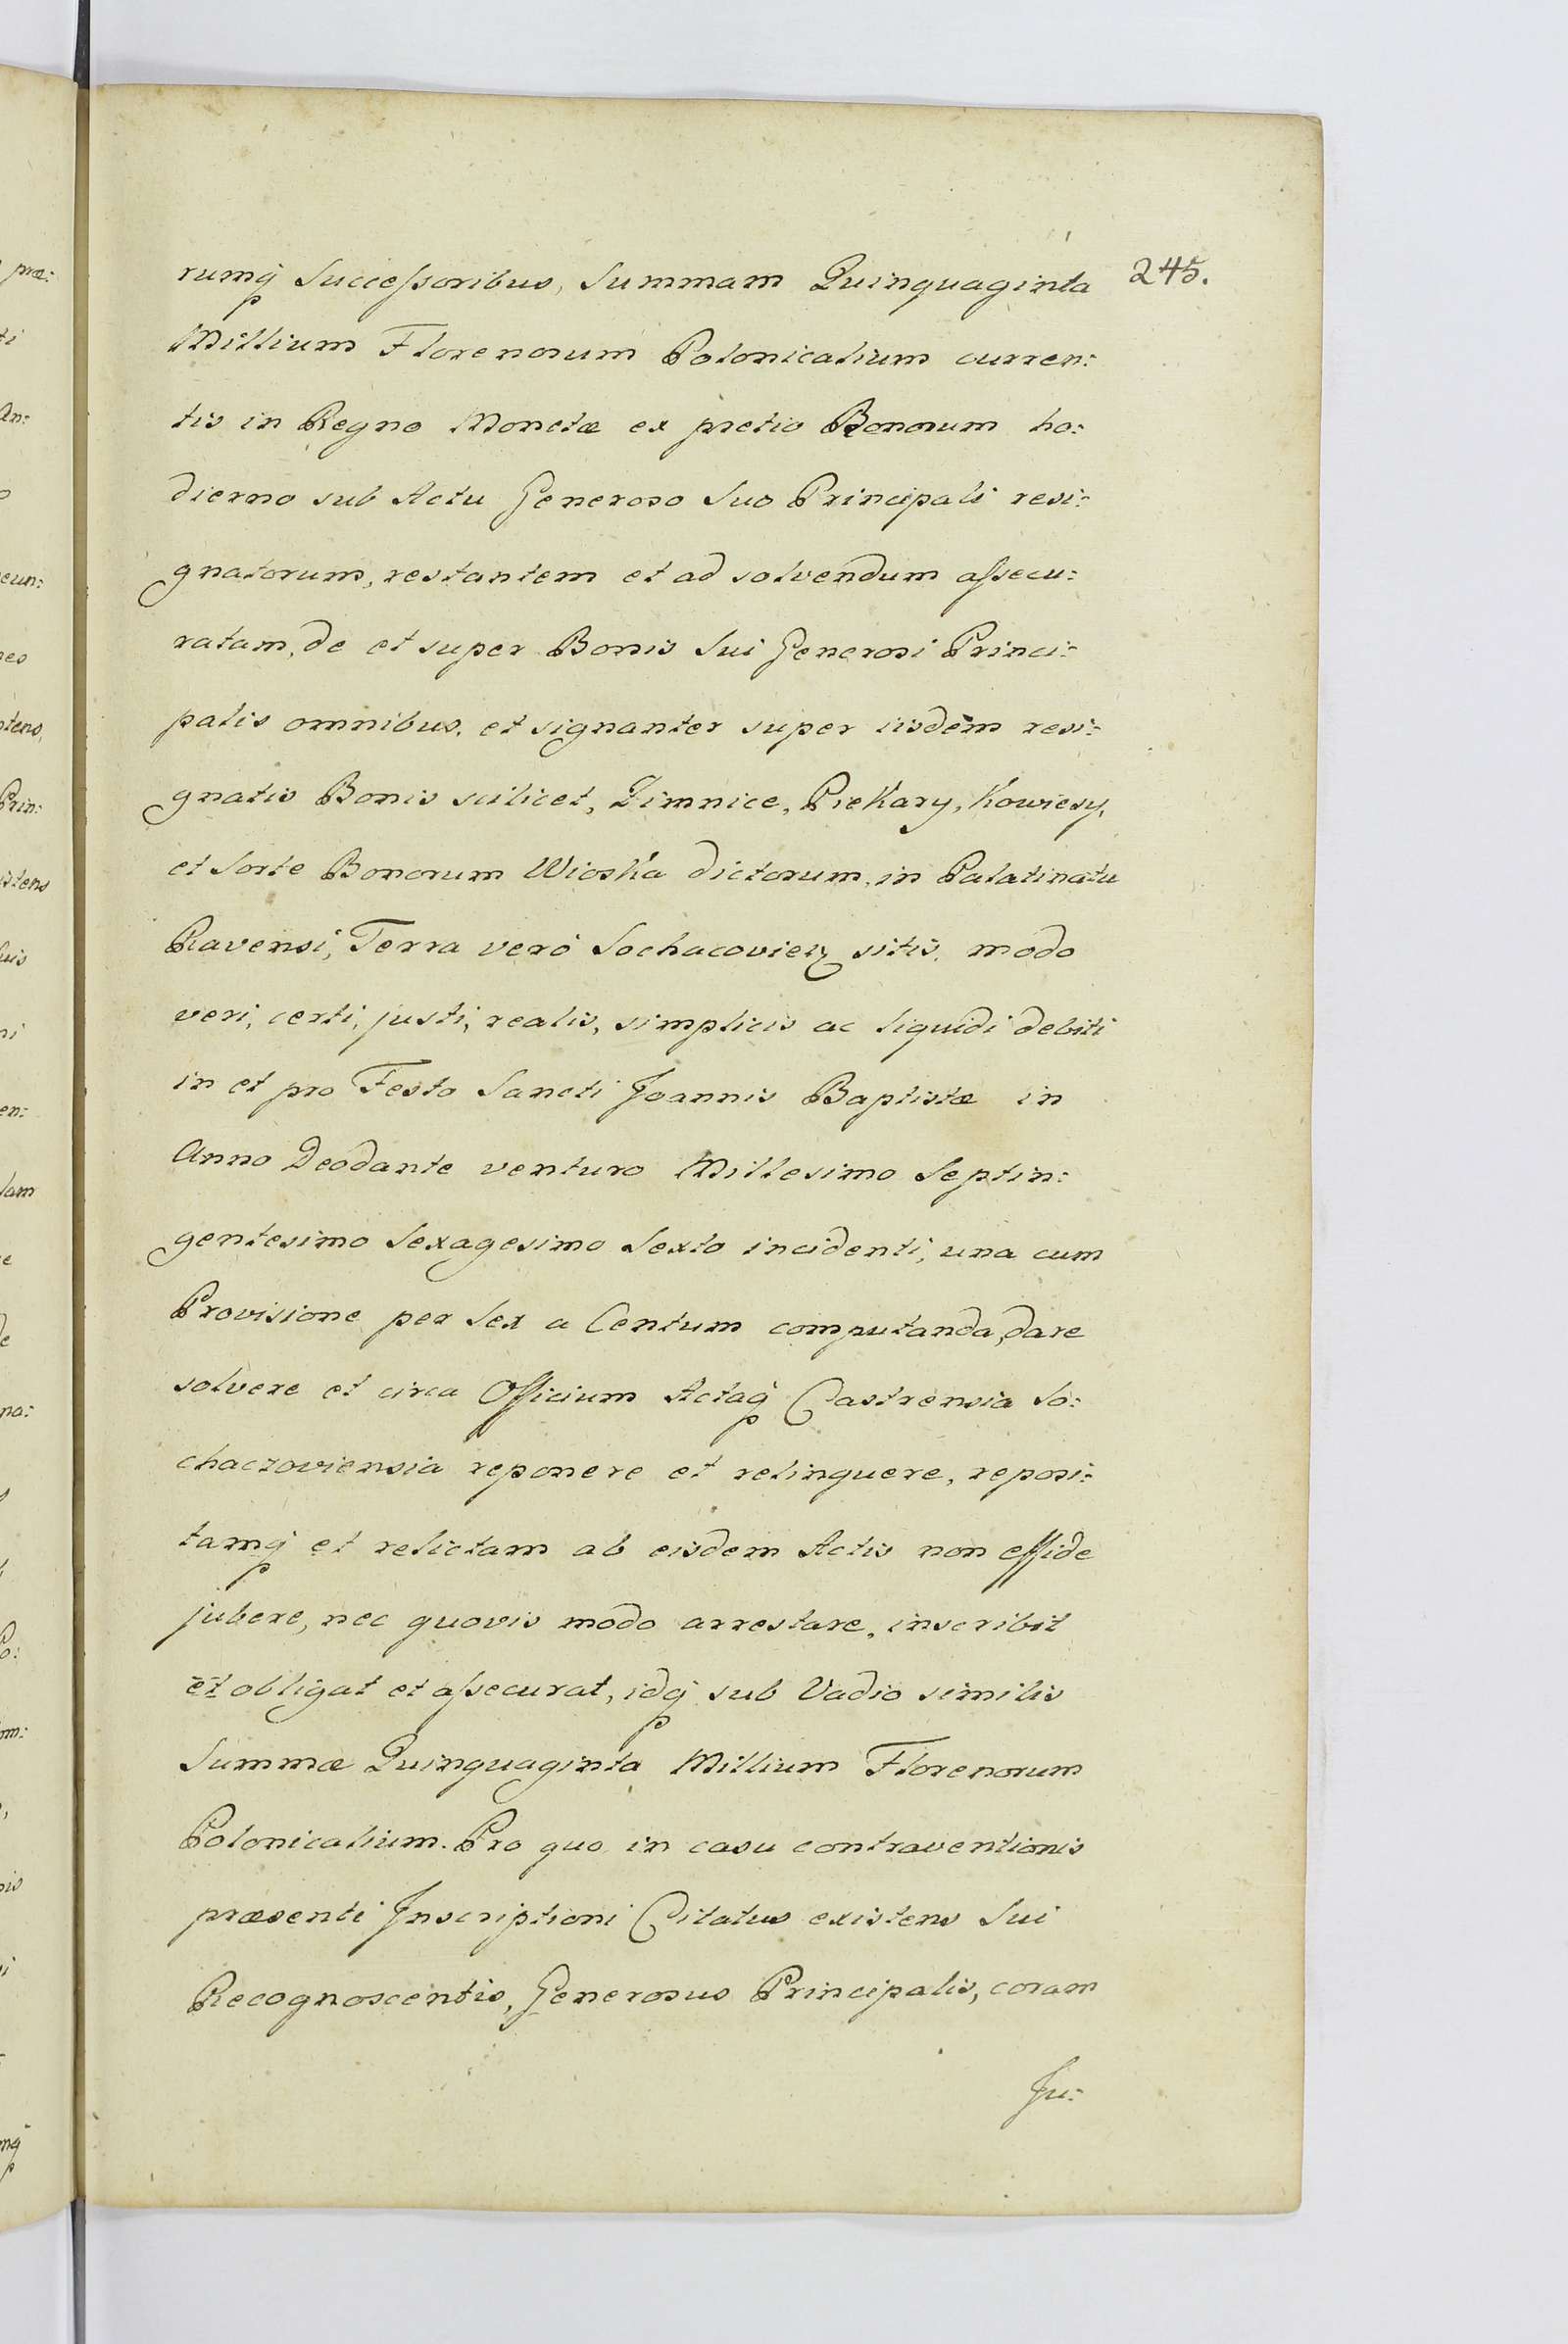 245.
rumq Successoribus, Summam Quinquaginta
Millium Florenorum Polonicalium curren:
tis in Regno Monetæ ex pretio Bonorum ho:
dierno sub Actu Generoso Suo Principali resi:
gnatorum, restantem et ad solvendum assecu:
ratam, de et super Bonis Sui Generosi Princi:
palis omnibus, et signanter super iisdem resi:
gnatis Bonis scilicet, Zimnice, Piekary, Kowiesy,
et Sorte Bonorum Wioska dictorum, in Palatinatu
Ravensi, Terra verò Sochacovien sitis, modo
veri, certi, justi, realis, simplicis ac liquidi debiti
in et pro Festo Sancti Joannis Baptistæ in
Anno Deodante venturo Millesimo Septin:
gentesimo Sexagesimo Sexto incidenti, una cum
Provisione per Sex a Centum computanda, dare
solvere et circa Officium Actaq Castrensia So:
chaczoviensia reponere et relinquere, reposi:
tamq et relictam ab eisdem Actis non effide
jubere, nec quovis modo arrestare, inscribit
et obligat et assecurat, idq sub Vadio similis
Summæ Quinquaginta Millium Florenorum
Polonicalium. Pro quo in casu contraventionis
præsenti Inscriptioni Citatus existens Sui
Recognoscentis, Generosus Principalis, coram
Ju:
præ:
ti
An:
eun:
Prin:
istens
en: